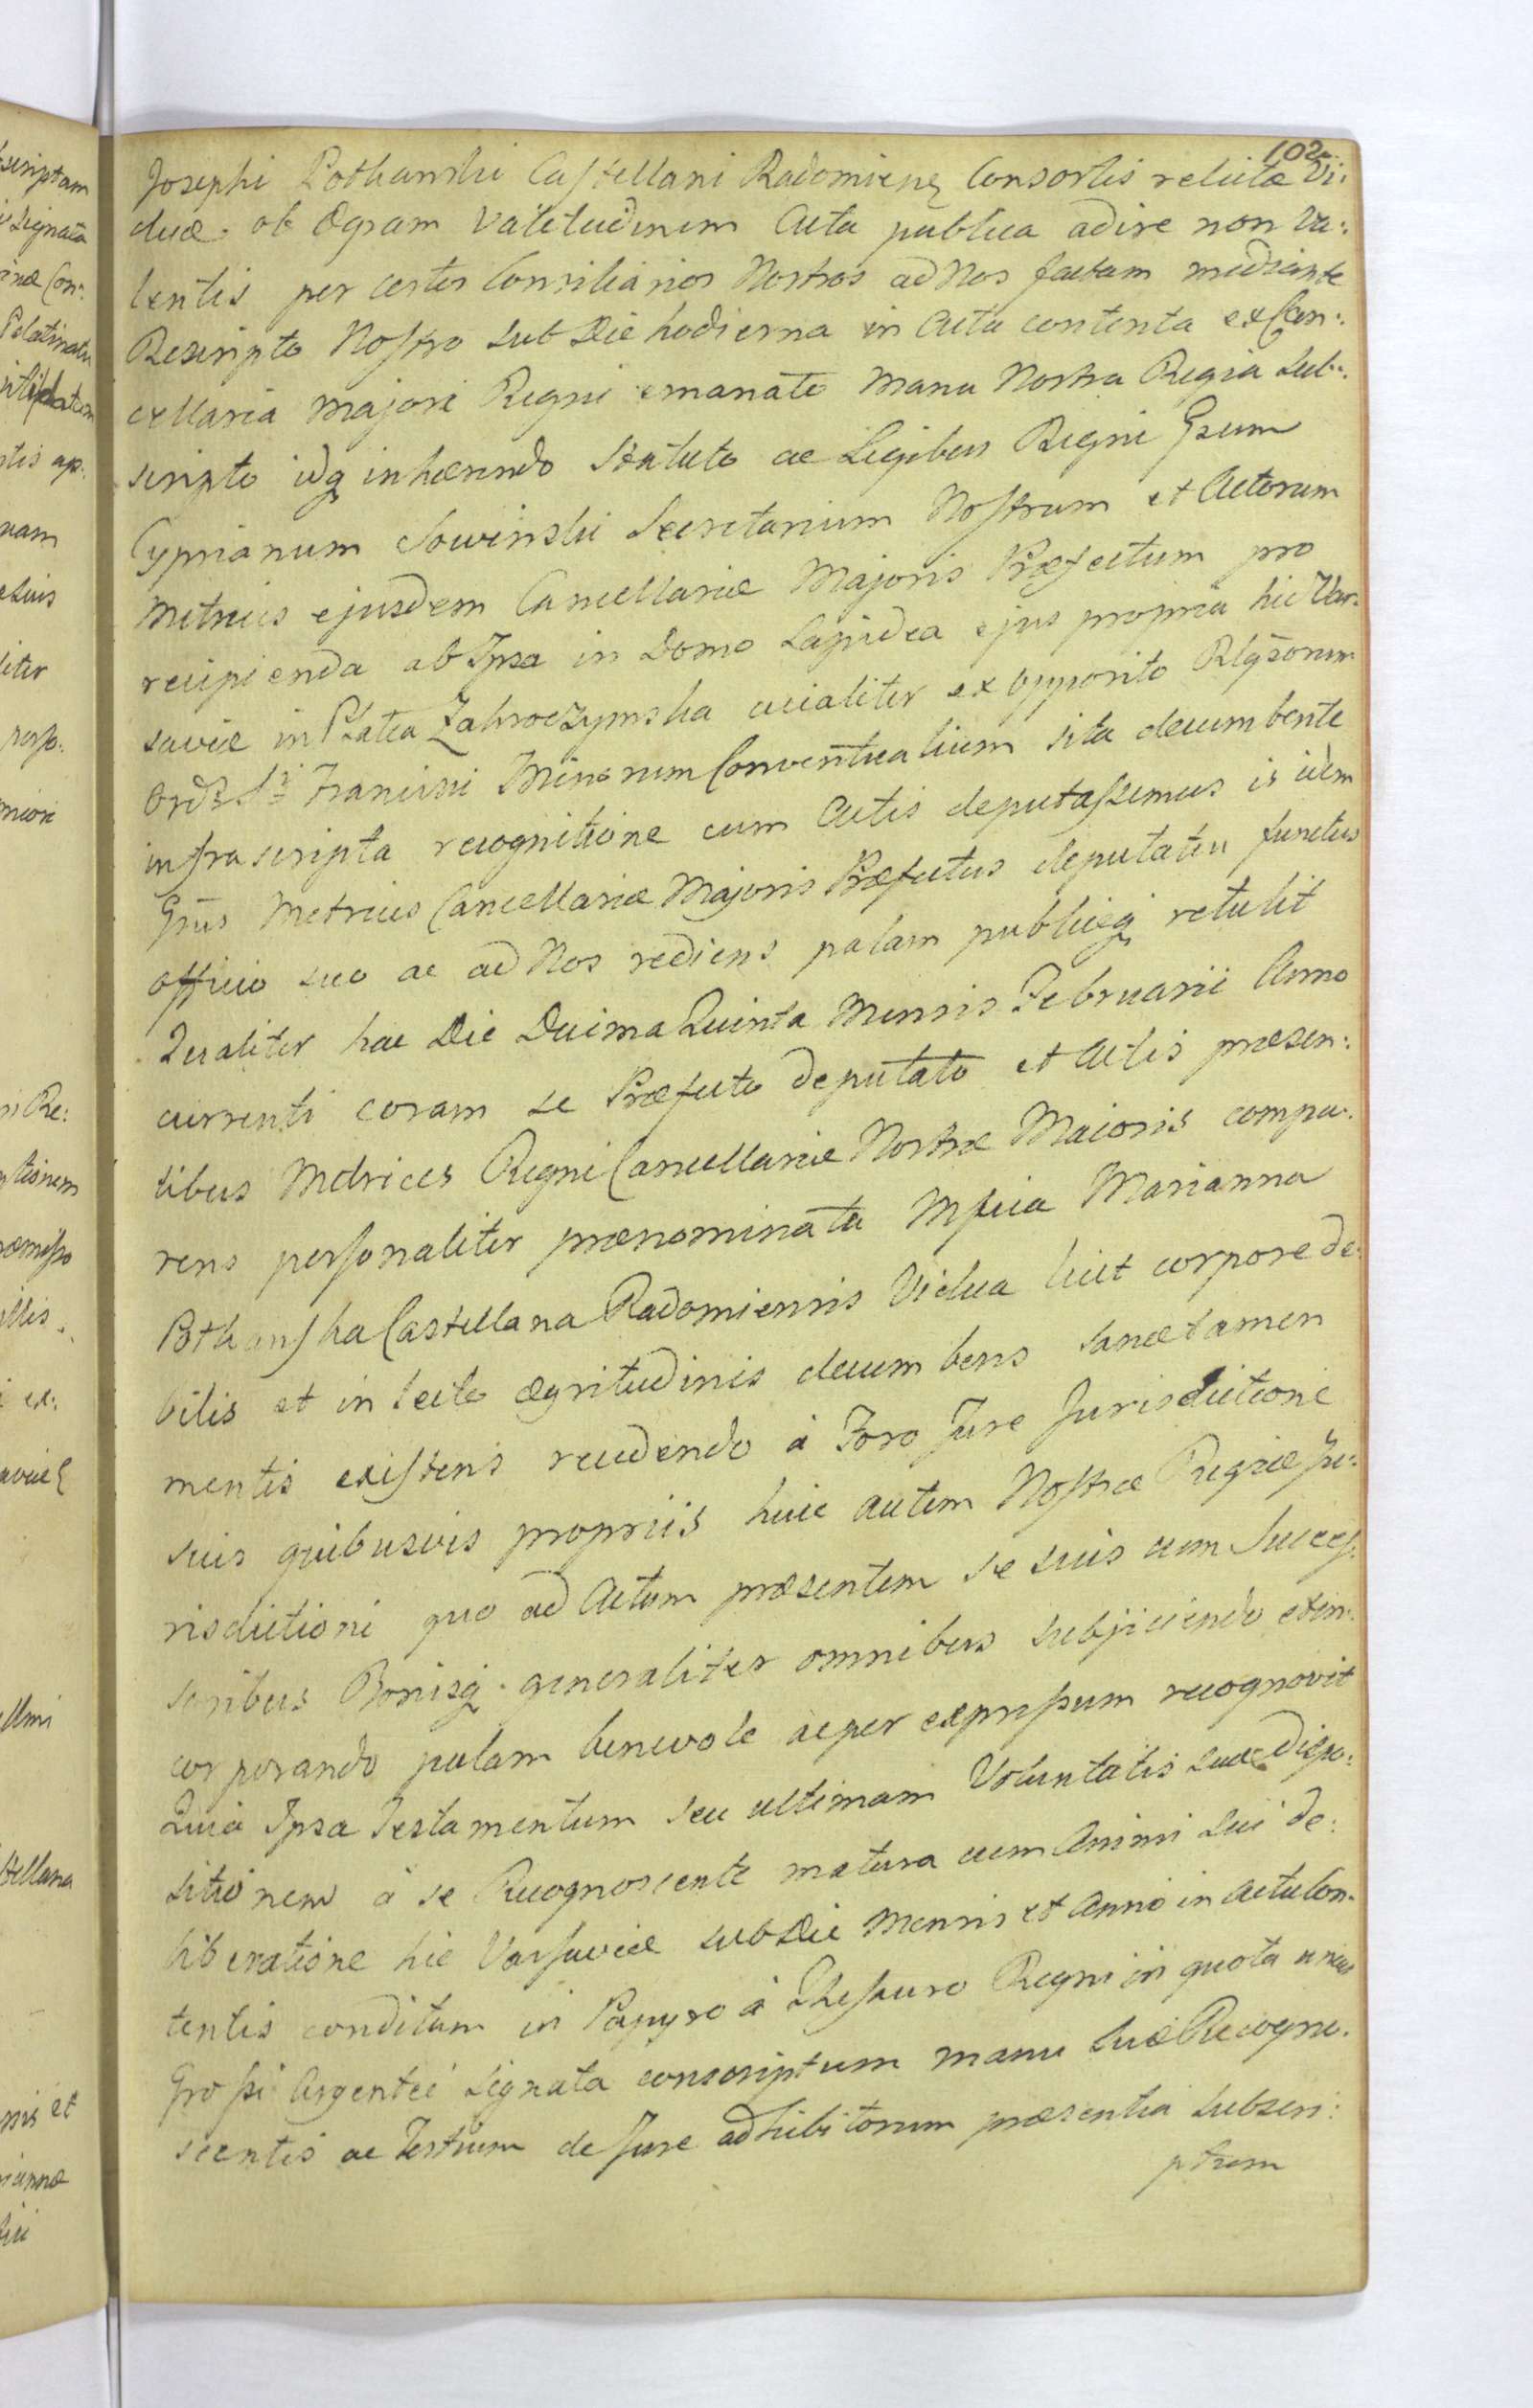 102
Josephi Potkanski Castellani Radomieng Consortis relictæ Vi:
duæ ob ægram Valetudinem Acta publica adire non va:
lentis per certos Consiliarios Nostros ad Nos factam mediante
Rescripto Nostro sub Die hodierna in Actu contenta ex Can:
cellaria Majori Regni emanato Manu Nostra Regia sub:
scripto idq inhærendo Statuto ac Legibus Regni Gsum
Cyprianum Sowinski Secretarium Nostrum et Actorum
Metrices ejusdem Cancellariæ Majoris Præfectum pro
recipienda ab Ipsa in Domo Lapidea ejus propria hic Var:
saviæ in Platea Zakroczymska acialiter ex opposito Rlgsorum
Ord: Sti Francisci Minorum Conventualium sita decumbente
infrascripta recognitione cum Actis deputassemus is idem
Gsus Metrices Cancellariæ Majoris Præfectus deputatus functus
officio suo ac ad Nos rediens palam publiceq retulit
Qualiter hac Die Decima Quinta Mensis Februarii Anno
currenti coram se Præfecto deputato et Actis præsen:
tibus Metrices Regni Cancellariæ Nostræ Maioris compa:
rens personaliter prænominata Mfica Marianna
Potkanska Castellana Radomiensis Vidua licet corpore de:
bilis et in lecto ægritudinis decumbens sanæ tamen
mentis existens recedendo à Foro Jure Jurisdictione
suis quibusvis propriis huic autem Nostræ Regiæ Ju:
risdictioni quo ad Actum præsentem se suis cum Succes:
soribus Bonisq generaliter omnibus subjiciendo et in:
corporando palam benevole ac per expressum recognovit
Quia Ipsa Testamentum seu ultimam Voluntatis suæ Dispo:
sitionem à se Recognoscente matura cum Animi sui de:
liberatione hic Varsaviæ sub Die Mensis et Anno in Actu Con:
tentis conditum in Papyro à Thesauro Regni in quota unius
Grossi Argentei signata conscriptum manu suæ Recogno:
scentis ac Testium de Jure adhibitorum præsentia subscri:
ptum